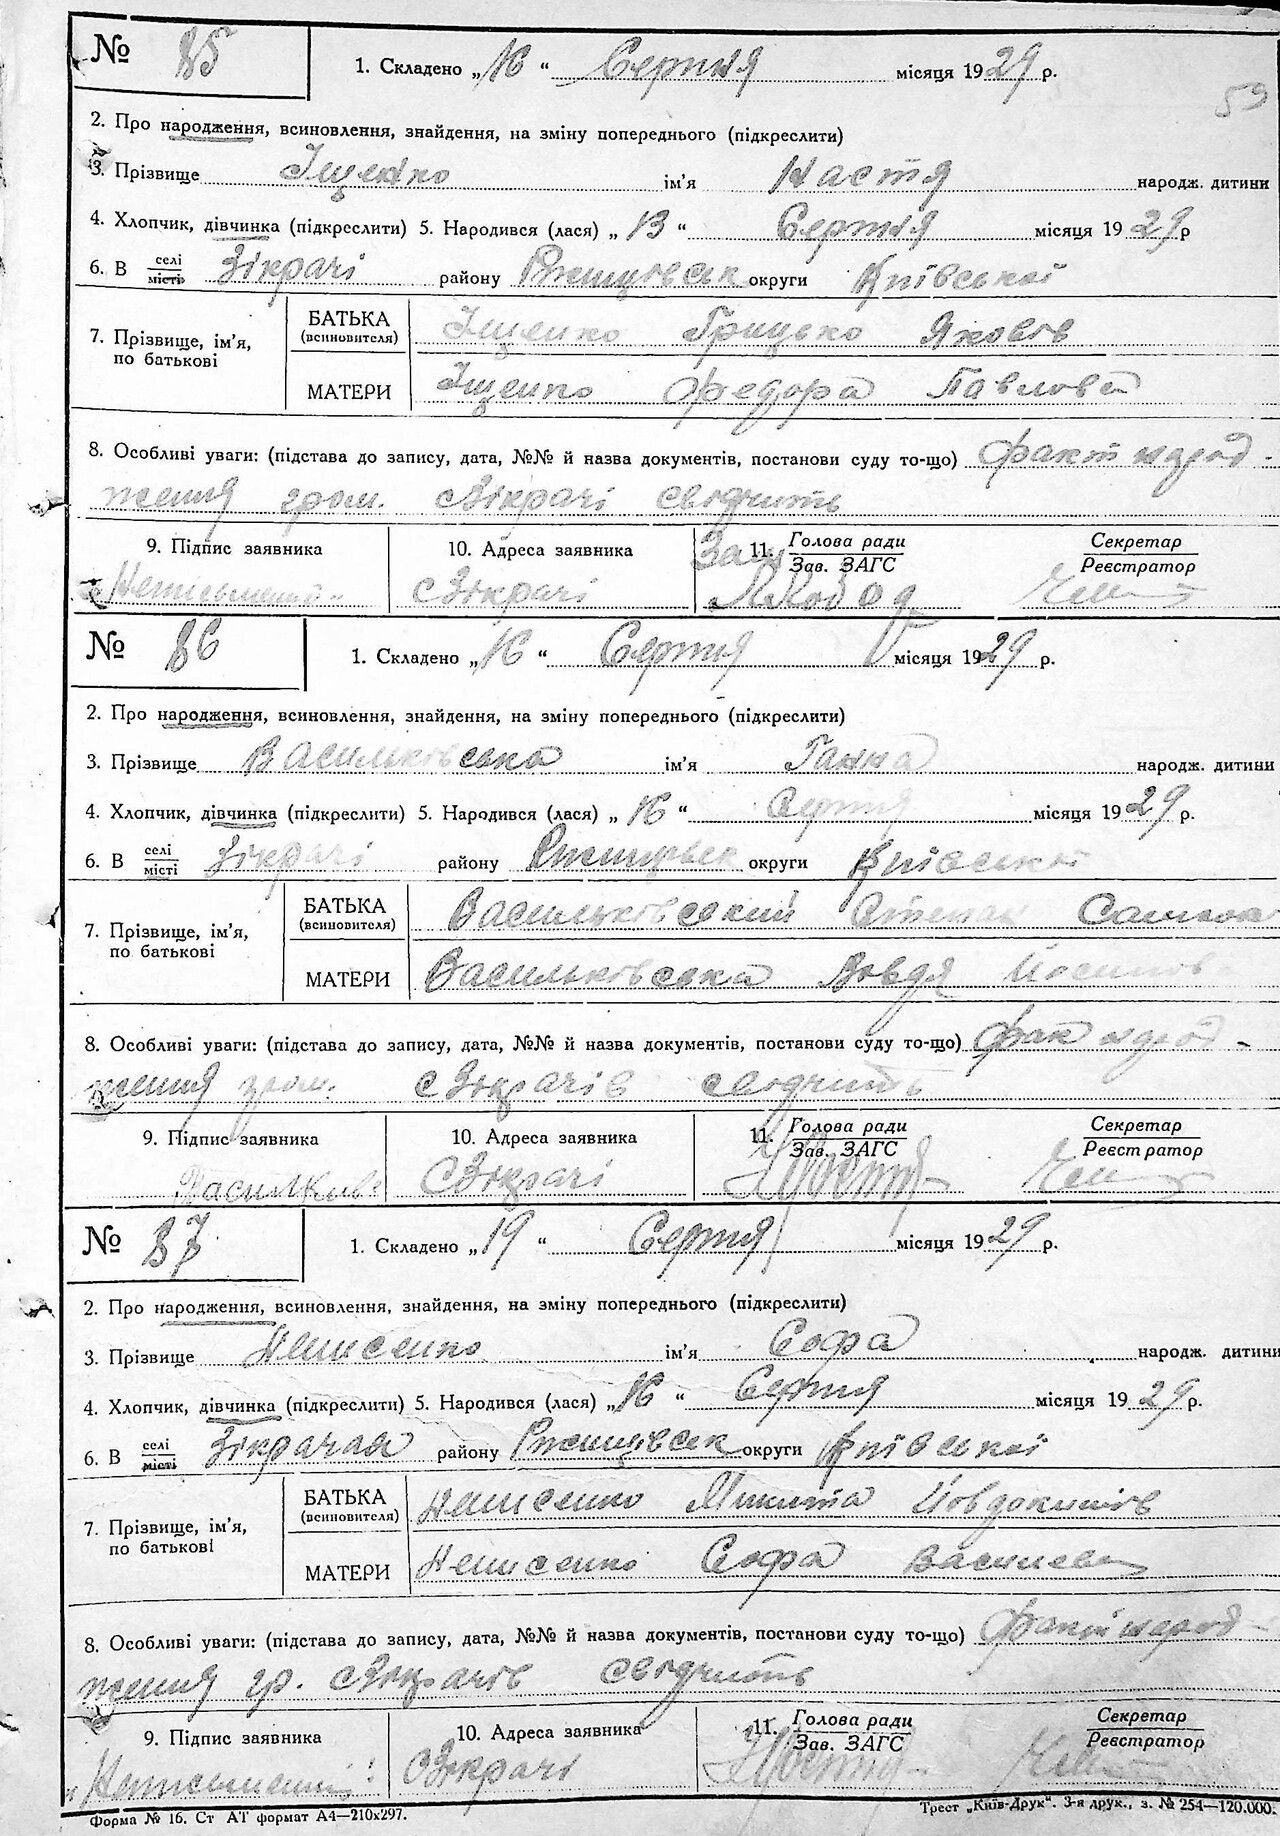 59
№ 85 1. Складено „16“ Серпня місяця 1929 р.
2. Про народження, всиновлення, знайдення, на зміну попереднього (підкреслити)
3. Прізвище Іщенко ім'я Настя народж. дитини
4. Хлопчик, дівчинка (підкреслити) 5. Народився (лася) „13“ Серпня місяця 1929 р
6. В селі місті Зікрачі району Ржищівськ округи Київської
7. Прізвище, ім'я, по батькові
БАТЬКА (всиновителя) Іщенко Грицько Яковів
МАТЕРИ Іщенко Федора Павлова
8. Особливі уваги: (підстава до запису, дата, №№ й назва документів, постанови суду то-що) Факт народ-
ження гром. с Зікрачі свідчить
9. Підпис заявника 10. Адреса заявника 11. Голова ради Зав. ЗАГС Секретар Реєстратор
с Зікрачі
№ 86 1. Складено „16“ Серпня місяця 1929 р.
2. Про народження, всиновлення, знайдення, на зміну попереднього (підкреслити)
3. Прізвище Васильковська ім'я Ганна народж. дитини
4. Хлопчик, дівчинка (підкреслити) 5. Народився (лася) „16“ Серпня місяця 1929 р.
6. В селі місті Зікрачі району округи Київської
7. Прізвище, ім'я, по батькові
БАТЬКА (всиновителя) Васильковський Степан
МАТЕРИ Васильковська Йосипов
8. Особливі уваги: (підстава до запису, дата, №№ й назва документів, постанови суду то-що) Фак народ-
ження гром. с Зікрачів свідчить
9. Підпис заявника 10. Адреса заявника 11. Голова ради Зав. ЗАГС Секретар Реєстратор
с Зікрачі
№ 87 1. Складено „19“ Серпня місяця 1929 р.
2. Про народження, всиновлення, знайдення, на зміну попереднього (підкреслити)
3. Прізвище Денисенко ім'я Софа народж. дитини
4. Хлопчик, дівчинка (підкреслити) 5. Народився (лася) „16“ Серпня місяця 1929 р.
6. В селі місті Зікрачах району Ржищівськ округи Київської
7. Прізвище, ім'я, по батькові
БАТЬКА (всиновителя) Денисенко Микита Йовдокимів
МАТЕРИ Денисенко Софа
8. Особливі уваги: (підстава до запису, дата, №№ й назва документів, постанови суду то-що) Факт народ-
ження гр. с Зікрачів свідчить
9. Підпис заявника 10. Адреса заявника 11. Голова ради Зав. ЗАГС Секретар Реєстратор
с Зікрачі
Форма № 16. Ст АТ формат А4—210х297. Трест „Київ-Друк“. 3-я друк., з. № 254—120.000.